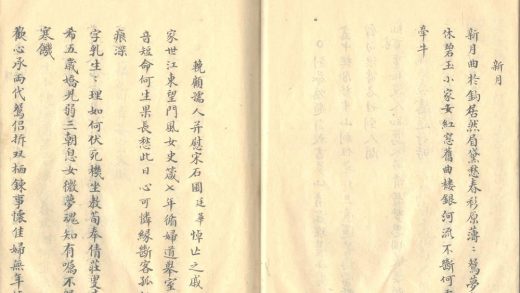 新月
新月曲於鈎居然眉黛愁春衫原薄〻鴛夢
休碧玉小家女紅窓舊曲樓銀河流不斷何
牽牛
輓顧孺人并慰宋石圃廷華悼亡之戚
家世江東望門風女史箴七年脩婦道舉室
音短命何生果長愁此日心可憐緣斷客孤
痕深
字乳生〻理如何伏死機坐教荀奉倩莊叟
希五歲嬌兒弱三朝息女微夢魂知有囑不
寒饑
歡心承兩代鴛侶折双栖鍊事懷佳婦無年